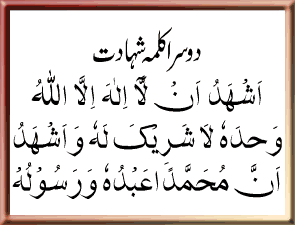 دوسرا کلمہ شہادت
اَشْهَدُ اَنْ لَّا اِلٰهَ اِلَّا اللّٰهُ
وَحْدَهٗ لَا شَرِيْكَ لَهٗ وَاَشْهَدُ
اَنَّ مُحَمَّدًا عَبْدُهٗ وَرَسُوْلُهٗ